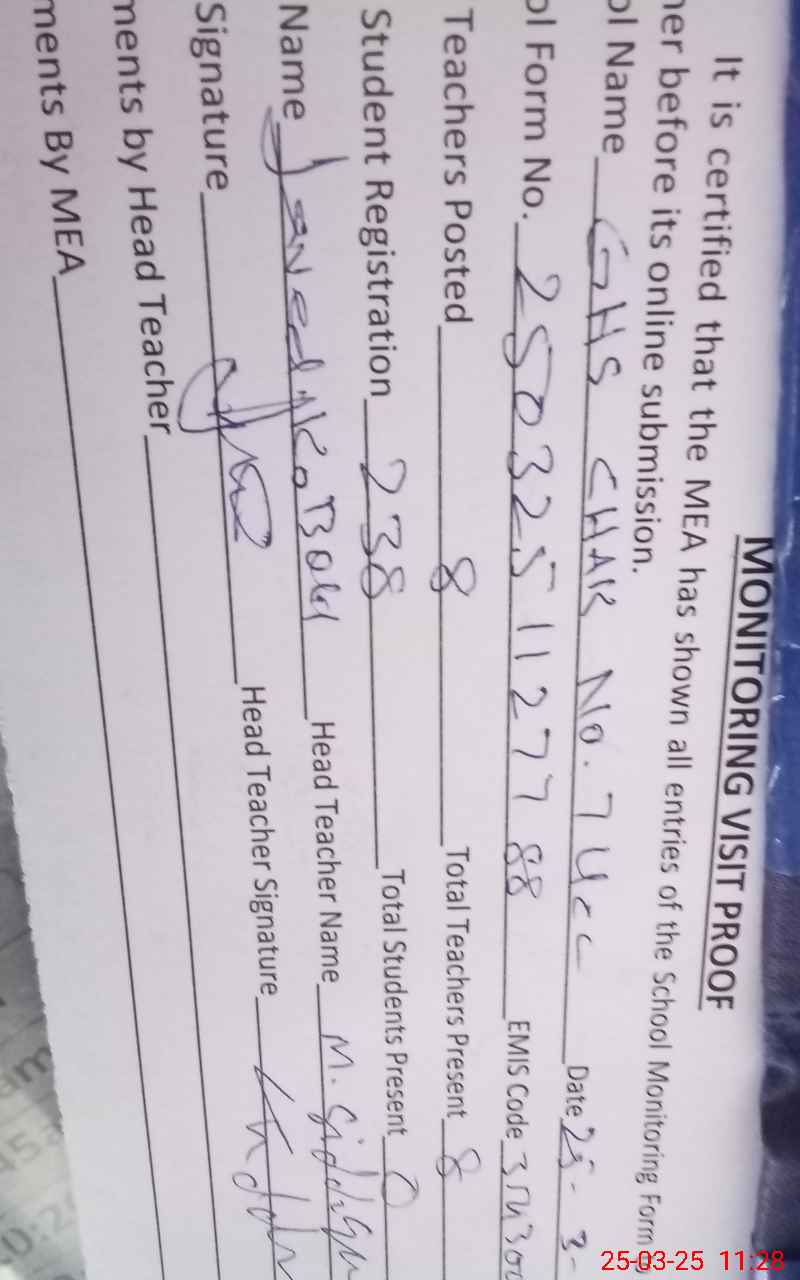 MONITORING VISIT PROOF
It is certified that the MEA has shown all entries of the School Monitoring Form to
her before its online submission.
ol Name GHS CHAK No. 74cc Date 25-3-
ol Form No. 2503251127788 EMIS Code
Teachers Posted 8 Total Teachers Present 8
Student Registration 238 Total Students Present 0
Name Javed Head Teacher Name M.
Signature Head Teacher Signature
ments by Head Teacher
ments By MEA
25-03-25 11:28